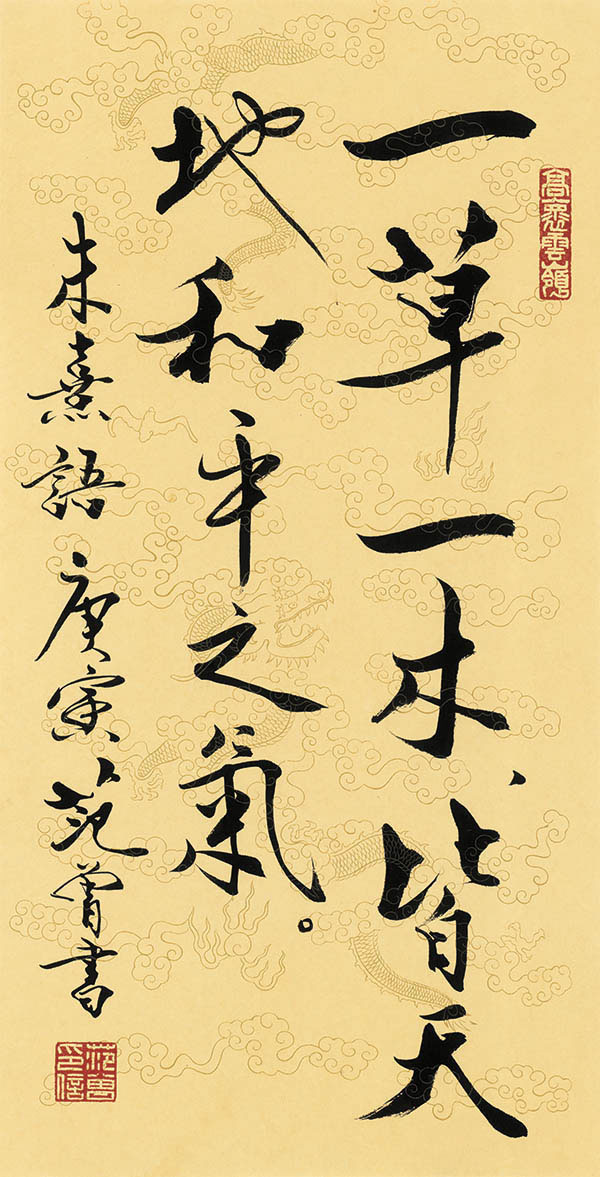 一草一木、皆天
地和平之氣。
朱熹語庚寅范曾書
范曾印信